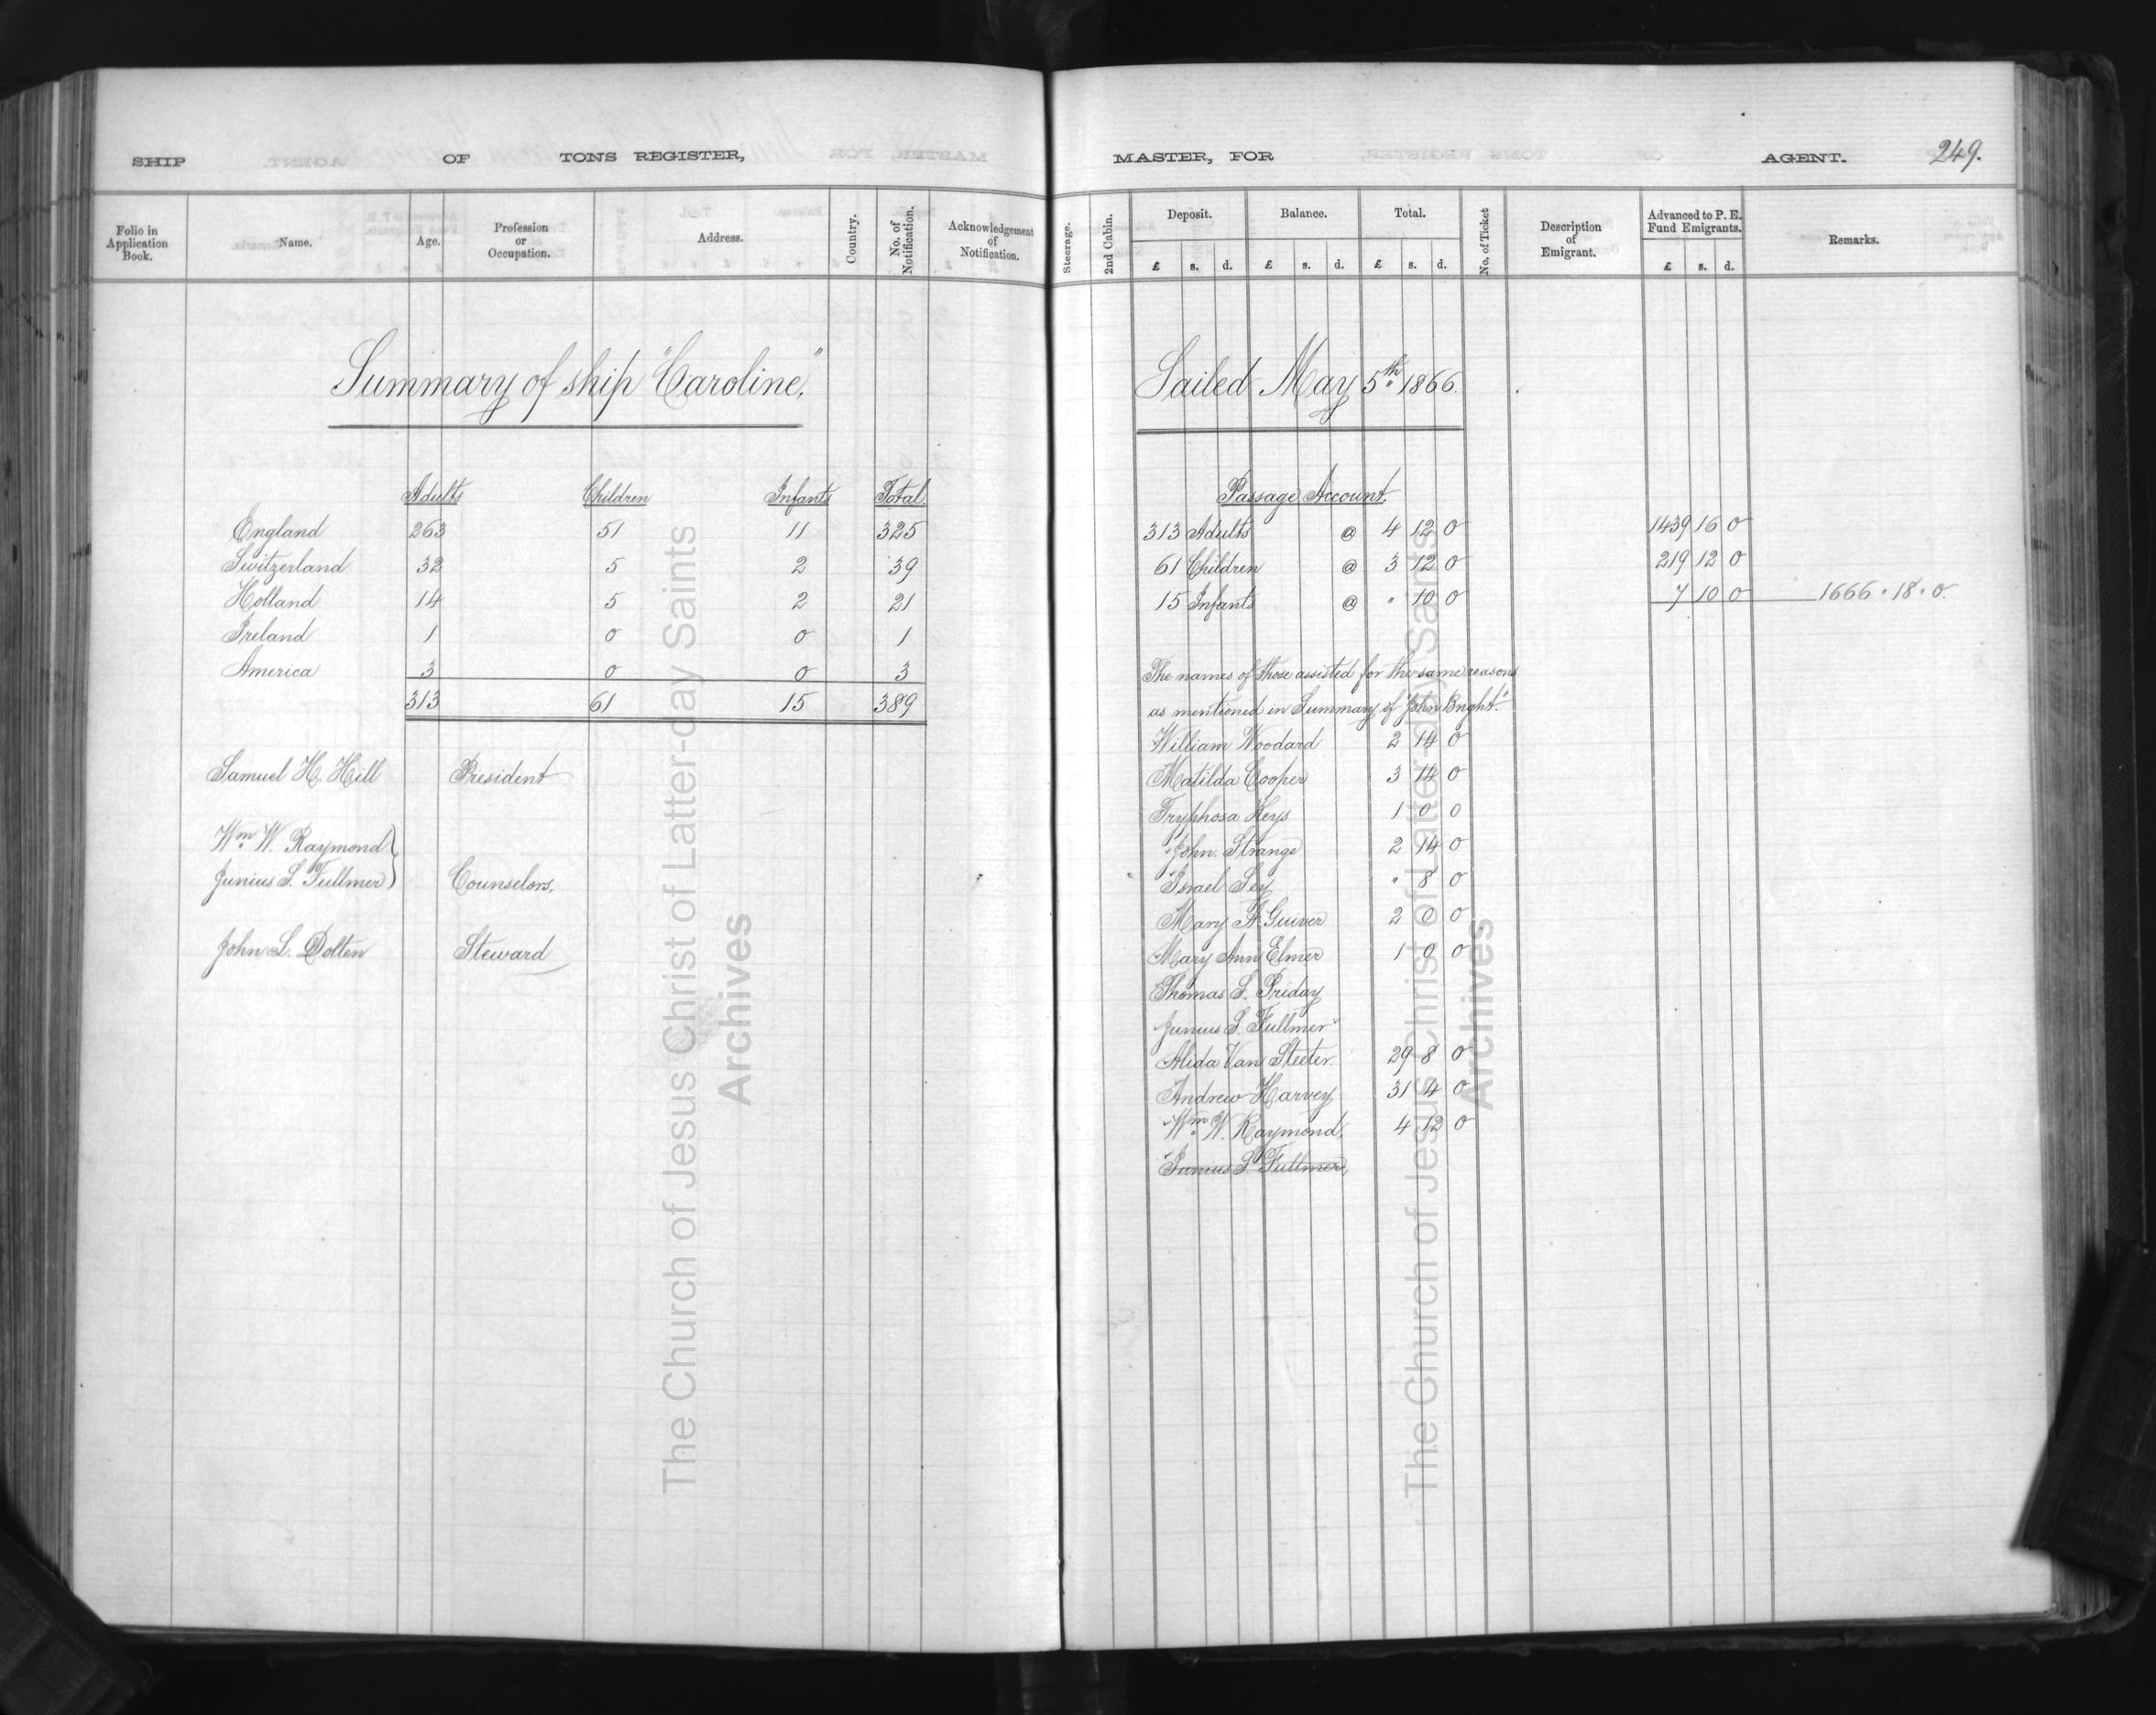 SHIP OF TONS REGISTER,
Folio in Application Book. Name. Age. Profession or Occupation. Address. Country. No. of Notification. Acknowledgement of Notification.
Summary of ship "Caroline,"
Adults Children Infants Total
England 263 51 11 325
Switzerland 32 5 2 39
Holland 14 5 2 21
Ireland 1 0 0 1
America 3 0 0 3
313 61 15 389
Samuel H. Hill President
Wm W. Raymond
Junius S. Fullmer Counselors,
John S. Dolten Steward
The Church of Jesus Christ of Latter-day Saints
Archives
MASTER, FOR AGENT. 249.
Steerage. 2nd Cabin. Deposit. Balance. Total. No. of Ticket Description of Emigrant. Advanced to P. E. Fund Emigrants. Remarks.
£ s. d. £ s. d. £ s. d. £ s. d.
Sailed May 5th 1866.
Passage Account.
313 Adults @ 4 12 0 1439 16 0
61 Children @ 3 12 0 219 12 0
15 Infants @ " 10 0 7 10 0 1666 " 18 " 0
The names of those assisted for the same reasons
as mentioned in Summary of "John Bright."
William Woodard 2 14 0
Matilda Cooper 3 14 0
Tryphosa Keys 1 0 0
John Strange 2 14 0
Israel Sey " 8 0
Mary A Guiver 2 0 0
Mary Ann Elmer 1 0 0
Thomas S. Priday
Junius S. Fullmer
Alida Van Steeter 29 8 0
Andrew Harvey 31 4 0
Wm W. Raymond, 4 12 0
Junius S. Fullmer,
The Church of Jesus Christ of Latter-day Saints
Archives